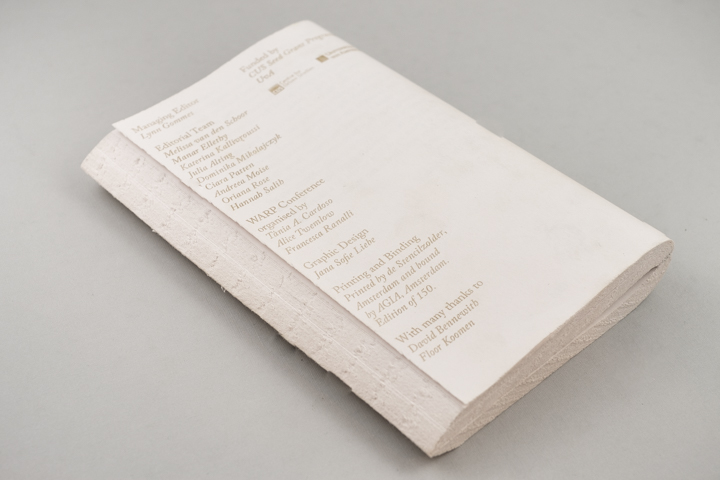 Managing Editor
Editorial Team
Melissa van den Schoor
Manar Ellethy
Katerina
Julia Alting
Dominika Mikołajczyk
Ciara Patten
Andreea Moise
Oriana Rose
Hannah Salih
WARP Conference
organised by
Tânia A. Cardoso
Alice Twemlow
Francesca Ranalli
Graphic Design
Jana Sofie Liebe
Printing and Binding
Printed by de Stencilzolder,
Amsterdam and bound
by AGIA, Amsterdam.
Edition of 150.
With many thanks to
David Bennewith
Floor Koomen
Funded by
Seed Grant
UvA